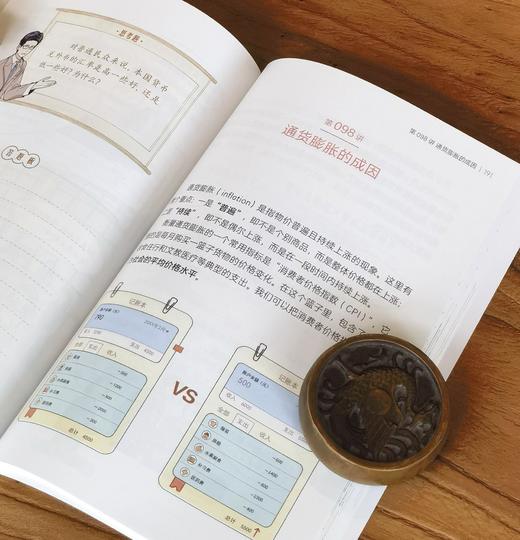 思考题
对普通民众来说，本国货币
兑外币的汇率是高一些好，还是
低一些好？为什么？
答题板
第 098 讲 通货膨胀的成因 | 191
第 098 讲
通货膨胀的成因
通货膨胀（inflation）是指物价普遍且持续上涨的现象。这里有
个重点：一是“普遍”，即不是个别商品，而是整体价格都在上涨；
“持续”，即不是偶尔上涨，而是在一段时间内持续上涨。
衡量通货膨胀的一个常用指标是“消费者价格指数（CPI）”，它
是每月购买一篮子货物的价格变化。在这个篮子里，包含
住行和文教医疗等典型的支出。我们可以把消费者价格
社会的平均价格水平。
记账本
790
支出 收入
总计 4500
VS
记账本
账户余额（元）
500
收入 6000
支出
全部 支出 收入
-500
-1400
水电
-600
补习费
-1200
医药费
-800
总计 5500